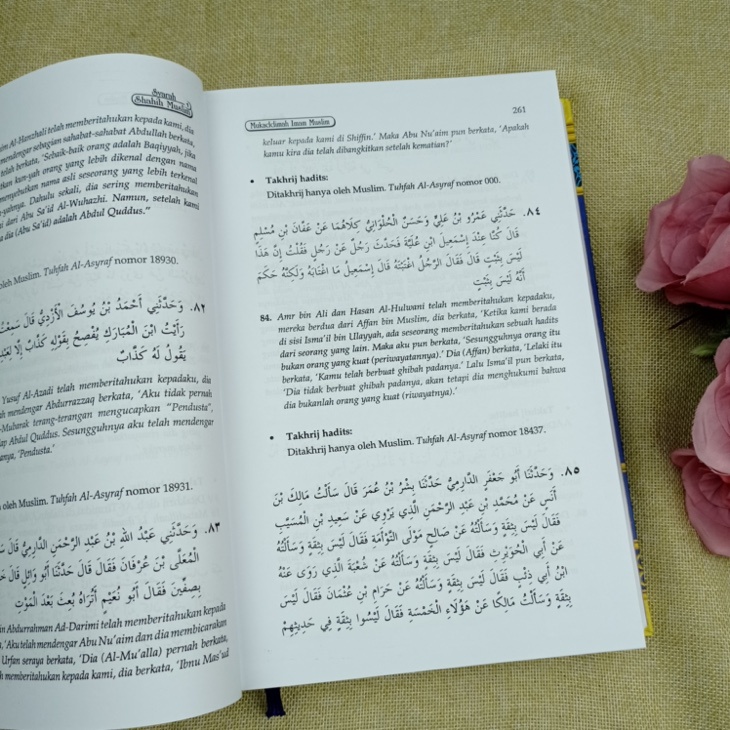 Syarah
Shahih Muslim
im Al-Hanzhali telah memberitahukan kepada kami, dia
mendengar sebagian sahabat-sahabat Abdullah berkata,
telah berkata, 'Sebaik-baik orang adalah Baqiyyah, jika
kan kun-yah orang yang lebih dikenal dengan nama
menyebutkan nama asli seseorang yang lebih terkenal
-yahnya. Dahulu sekali, dia sering memberitahukan
i dari Abu Sa'id Al-Wuhazhi. Namun, setelah kami
a dia (Abu Sa'id) adalah Abdul Quddus."
oleh Muslim. Tuhfah Al-Asyraf nomor 18930.
٨٢. وَحَدَّثَنِي أَحْمَدُ بْنُ يُوسُفَ الْأَزْدِيُّ قَالَ سَمِعْتُ
رَأَيْتُ ابْنَ الْمُبَارَكِ يُفْصِحُ بِقَوْلِهِ كَذَّابٌ إِلَّا لِعَبْدِ
يَقُولُ لَهُ كَذَّابٌ
Yusuf Al-Azadi telah memberitahukan kepadaku, dia
ah mendengar Abdurrazzaq berkata, 'Aku tidak pernah
-Mubarak terang-terangan mengucapkan "Pendusta",
ap Abdul Quddus. Sesungguhnya aku telah mendengar
anya, 'Pendusta.'
oleh Muslim. Tuhfah Al-Asyraf nomor 18931.
٨٣. وَحَدَّثَنِي عَبْدُ اللهِ بْنُ عَبْدِ الرَّحْمَنِ الدَّارِمِيُّ قَالَ
الْمُعَلَّى بْنَ عُرْفَانَ فَقَالَ قَالَ حَدَّثَنَا أَبُو وَائِلٍ قَالَ
بِصِفِّينَ فَقَالَ أَبُو نُعَيْمٍ أَتُرَاهُ بُعِثَ بَعْدَ الْمَوْتِ
in Abdurrahman Ad-Darimi telah memberitahukan kepada
, 'Aku telah mendengar Abu Nu'aim dan dia membicarakan
Urfan seraya berkata, 'Dia (Al-Mu'alla) pernah berkata,
h memberitahukan kepada kami, dia berkata, 'Ibnu Mas'ud
Mukaddimah Imam Muslim
261
keluar kepada kami di Shiffin.' Maka Abu Nu'aim pun berkata, 'Apakah
kamu kira dia telah dibangkitkan setelah kematian?'
• Takhrij hadits:
Ditakhrij hanya oleh Muslim. Tuhfah Al-Asyraf nomor 000.
٨٤. حَدَّثَنِي عَمْرُو بْنُ عَلِيٍّ وَحَسَنٌ الْحُلْوَانِيُّ كِلَاهُمَا عَنْ عَفَّانَ بْنِ مُسْلِمٍ
قَالَ كُنَّا عِنْدَ إِسْمَعِيلَ ابْنِ عُلَيَّةَ فَحَدَّثَ رَجُلٌ عَنْ رَجُلٍ فَقُلْتُ إِنَّ هَذَا
لَيْسَ بِثَبْتٍ قَالَ فَقَالَ الرَّجُلُ اغْتَبْتَهُ قَالَ إِسْمَعِيلُ مَا اغْتَابَهُ وَلَكِنَّهُ حَكَمَ
أَنَّهُ لَيْسَ بِثَبْتٍ
84. Amr bin Ali dan Hasan Al-Hulwani telah memberitahukan kepadaku,
mereka berdua dari Affan bin Muslim, dia berkata, 'Ketika kami berada
di sisi Isma'il bin Ulayyah, ada seseorang memberitahukan sebuah hadits
dari seorang yang lain. Maka aku pun berkata, 'Sesungguhnya orang itu
bukan orang yang kuat (periwayatannya).' Dia (Affan) berkata, 'Lelaki itu
berkata, 'Kamu telah berbuat ghibah padanya.' Lalu Isma'il pun berkata,
'Dia tidak berbuat ghibah padanya, akan tetapi dia menghukumi bahwa
dia bukanlah orang yang kuat (riwayatnya).'
• Takhrij hadits:
Ditakhrij hanya oleh Muslim. Tuhfah Al-Asyraf nomor 18437.
٨٥. وَحَدَّثَنَا أَبُو جَعْفَرٍ الدَّارِمِيُّ حَدَّثَنَا بِشْرُ بْنُ عُمَرَ قَالَ سَأَلْتُ مَالِكَ بْنَ
أَنَسٍ عَنْ مُحَمَّدِ بْنِ عَبْدِ الرَّحْمَنِ الَّذِي يَرْوِي عَنْ سَعِيدِ بْنِ الْمُسَيَّبِ
فَقَالَ لَيْسَ بِثِقَةٍ وَسَأَلْتُهُ عَنْ صَالِحٍ مَوْلَى التَّوْأَمَةِ فَقَالَ لَيْسَ بِثِقَةٍ وَسَأَلْتُهُ
عَنْ أَبِي الْحُوَيْرِثِ فَقَالَ لَيْسَ بِثِقَةٍ وَسَأَلْتُهُ عَنْ شُعْبَةَ الَّذِي رَوَى عَنْهُ
ابْنُ أَبِي ذِئْبٍ فَقَالَ لَيْسَ بِثِقَةٍ وَسَأَلْتُهُ عَنْ حَرَامِ بْنِ عُثْمَانَ فَقَالَ لَيْسَ
بِثِقَةٍ وَسَأَلْتُ مَالِكًا عَنْ هَؤُلَاءِ الْخَمْسَةِ فَقَالَ لَيْسُوا بِثِقَةٍ فِي حَدِيثِهِمْ